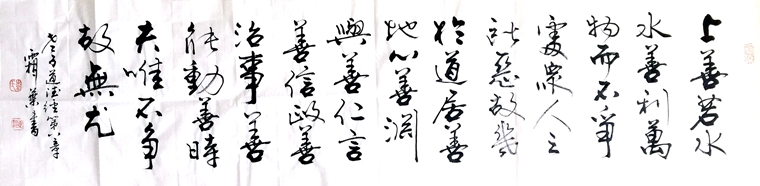 上善若水
水善利萬
物而不爭
處眾人之
所惡故幾
於道居善
地心善淵
與善仁言
善信政善
治事善
能動善時
夫唯不爭
故無尤
老子道德經第八章
霜葉書